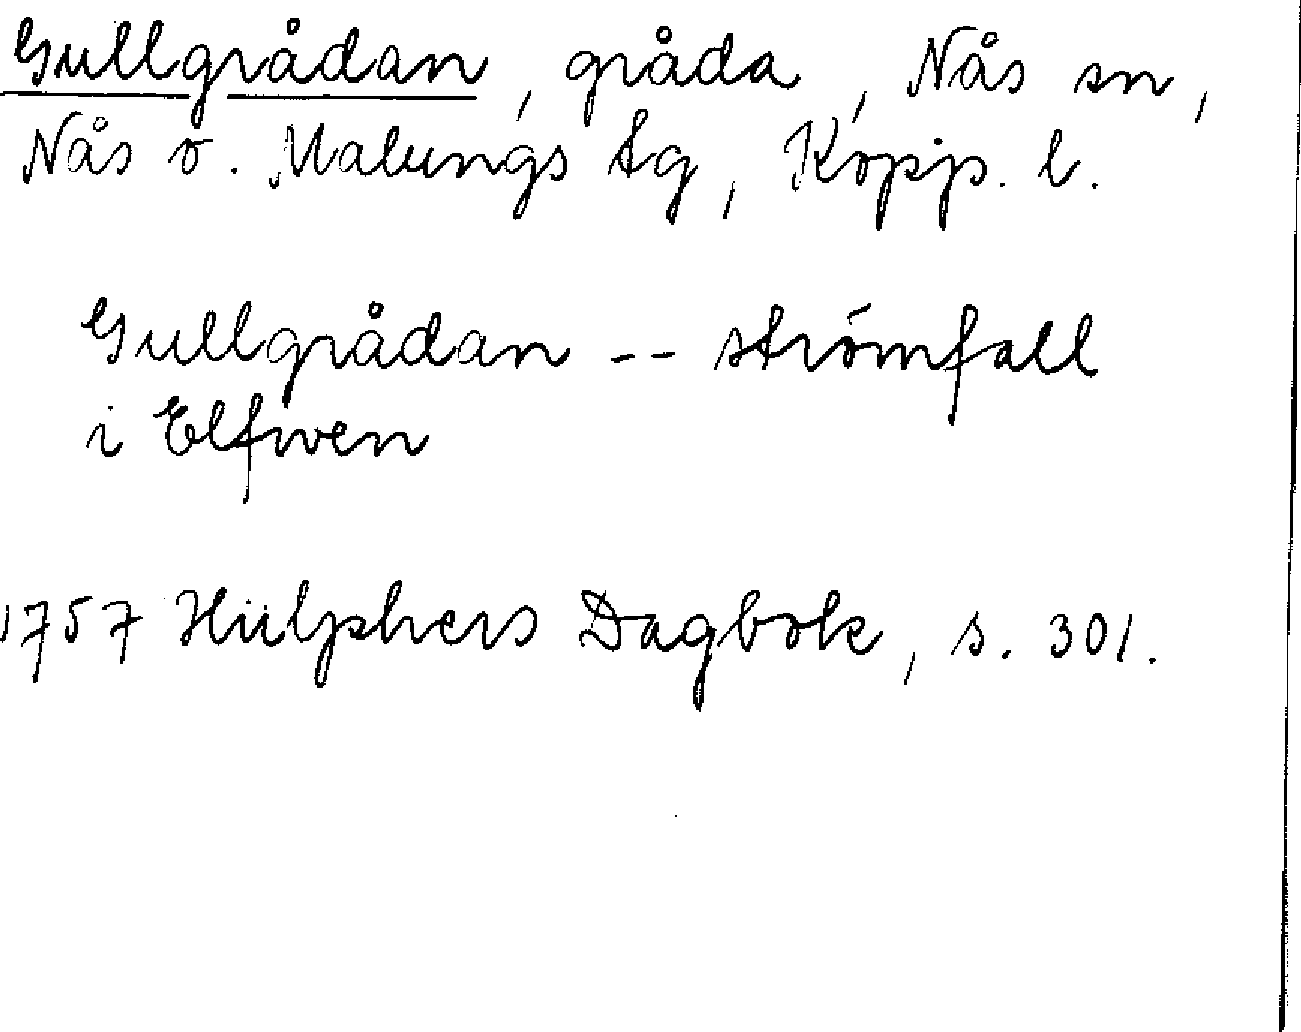 Gullgrådan, gråda, Nås sn,
Nås o. Malungs tg, Kopp. l.
Gullgrådan -- strömfall
i Elfwen
1757 Hülphers Dagbok, s. 301.